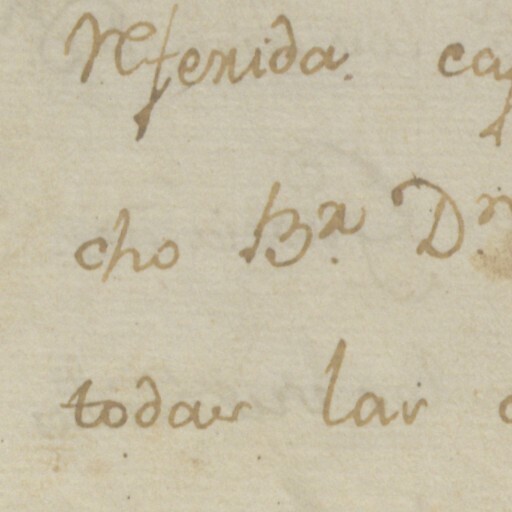 Referida. cap
cho B.r D.n
todas las